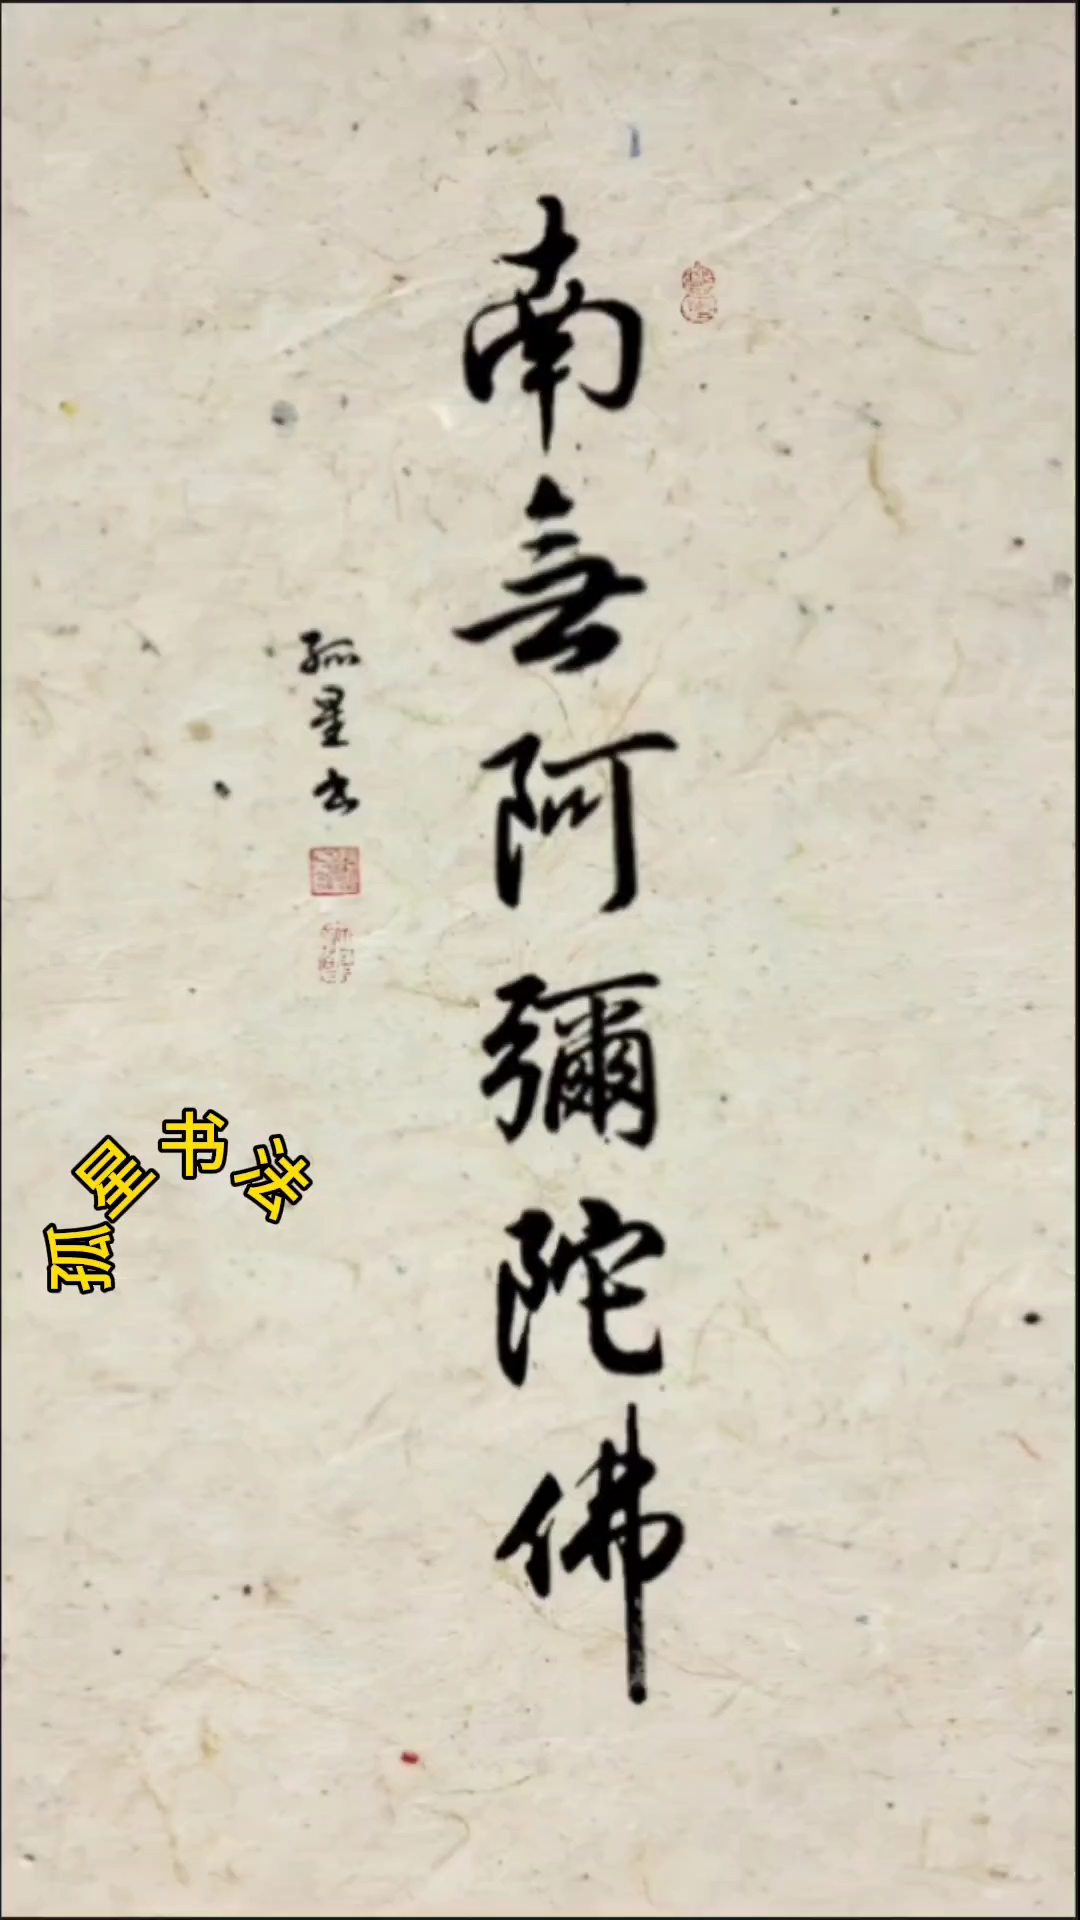 南無阿彌陀佛
孤星书
孤星书法